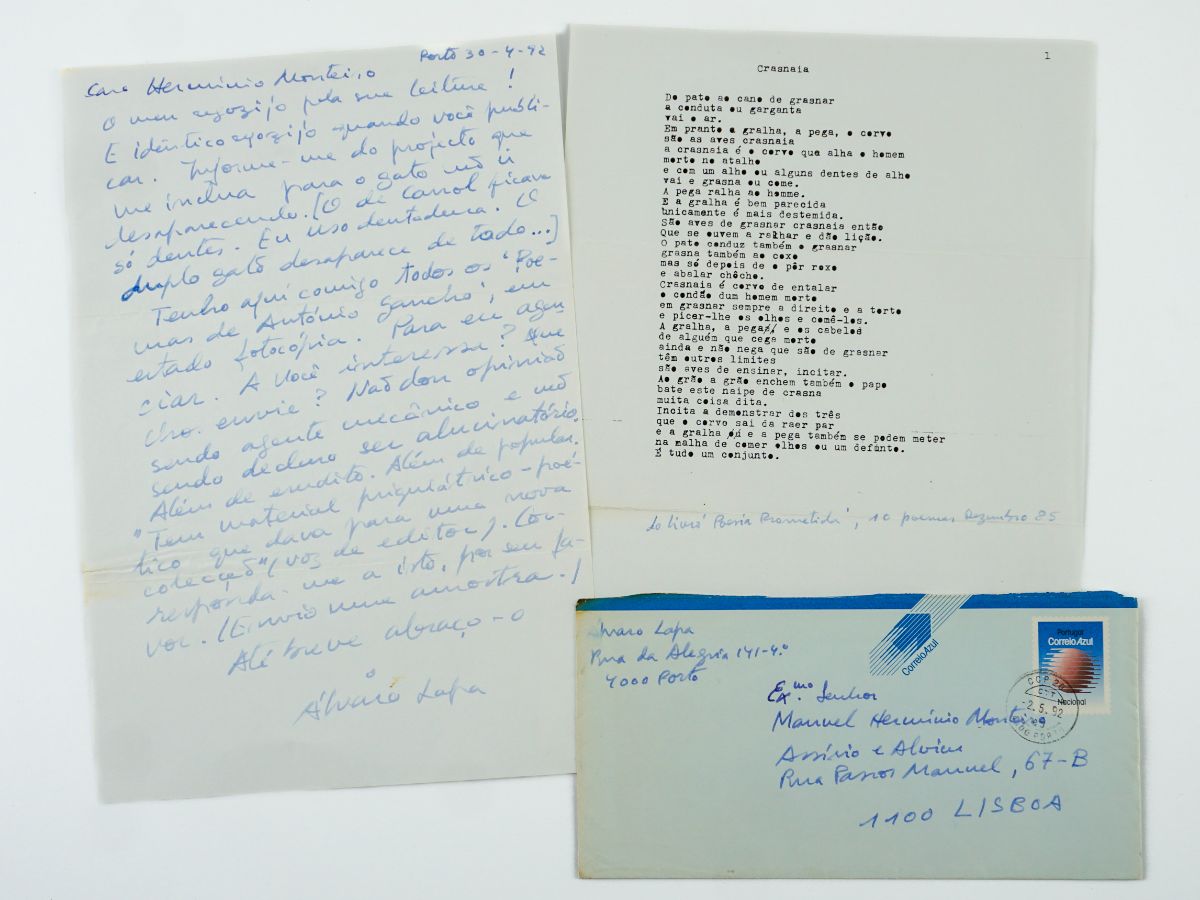 Porto 30-4-92
Caro Hermínio Monteiro
O meu regozijo pela sua leitura!
E idêntico regozijo quando você publi-
car. Informe-me do projecto que
me inclua para o gato não ir
desaparecendo. [O de Carrol ficava
só dentes. Eu uso dentadura. O
duplo gato desaparece de todo...]
Tenho aqui comigo todos os "Poe-
mas de António Gancho", em
estado fotocópia. Para eu agen-
ciar. A você interessa? Que
lho envie? Não dou opinião
sendo agente mecânico e não
sendo declino ser alucinatório.
Além de erudito. Além de popular.
"Tem material psiquiátrico-poé-
tico que dava para uma nova
colecção" (voz de editor). Cor-
responda-me a isto, por seu fa-
vor. (Envio uma amostra.)
Até breve abraço-o
Álvaro Lapa
1
Crasnaia
Do pato ao cano de grasnar
a conduta ou garganta
vai o ar.
Em pranto a gralha, a pega, o corvo
são as aves crasnaia
a crasnaia é o corvo que alha o homem
morto no atalho
e com um alho ou alguns dentes de alho
vai e grasna ou come.
A pega ralha ao homme.
E a gralha é bem parecida
unicamente é mais destemida.
São aves de grasnar crasnaia então
Que se ouvem a ralhar e dão lição.
O pato conduz também o grasnar
grasna também ao coxo
mas só depois de o pôr roxo
e abalar chôcho.
Crasnaia é corvo de entalar
o condão dum homem morto
em grasnar sempre a direito e a torto
e picar-lhe os olhos e comê-los.
A gralha, a pega e os cabelos
de alguém que cega morto
ainda e não nega que são de grasnar
têm outros limites
são aves de ensinar, incitar.
Ao grão a grão enchem também o papo
bate este naipe de crasna
muita coisa dita.
Incita a demonstrar dos três
que o corvo sai da raer par
e a gralha e a pega também se podem meter
na malha de comer olhos ou um defunto.
É tudo um conjunto.
do livro "Poesia Prometida", 10 poemas Dezembro 85
Álvaro Lapa
Rua da Alegria 141-4.º
4000 Porto
CorreioAzul
Portugal
CorreioAzul
Nacional
CTT
-2.5.92
PORTO
Exmo. Senhor
Manuel Hermínio Monteiro
Assírio e Alvim
Rua Passos Manuel, 67-B
1100 LISBOA